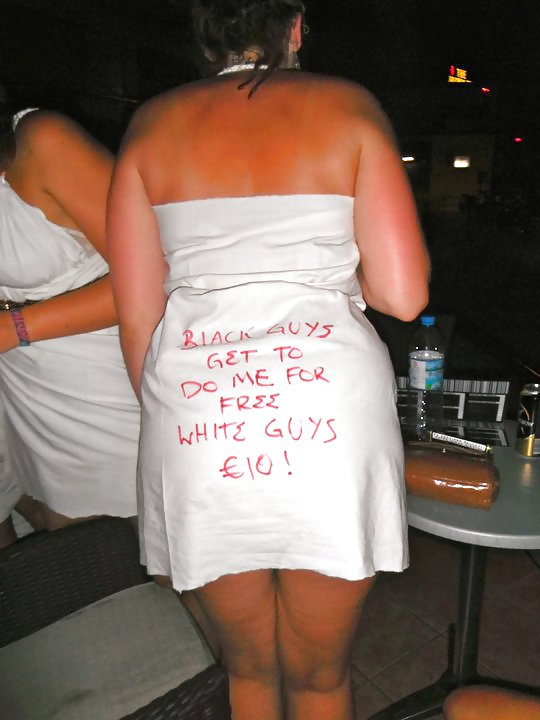 BLACK GUYS
GET TO
DO ME FOR
FREE
WHITE GUYS
€10!